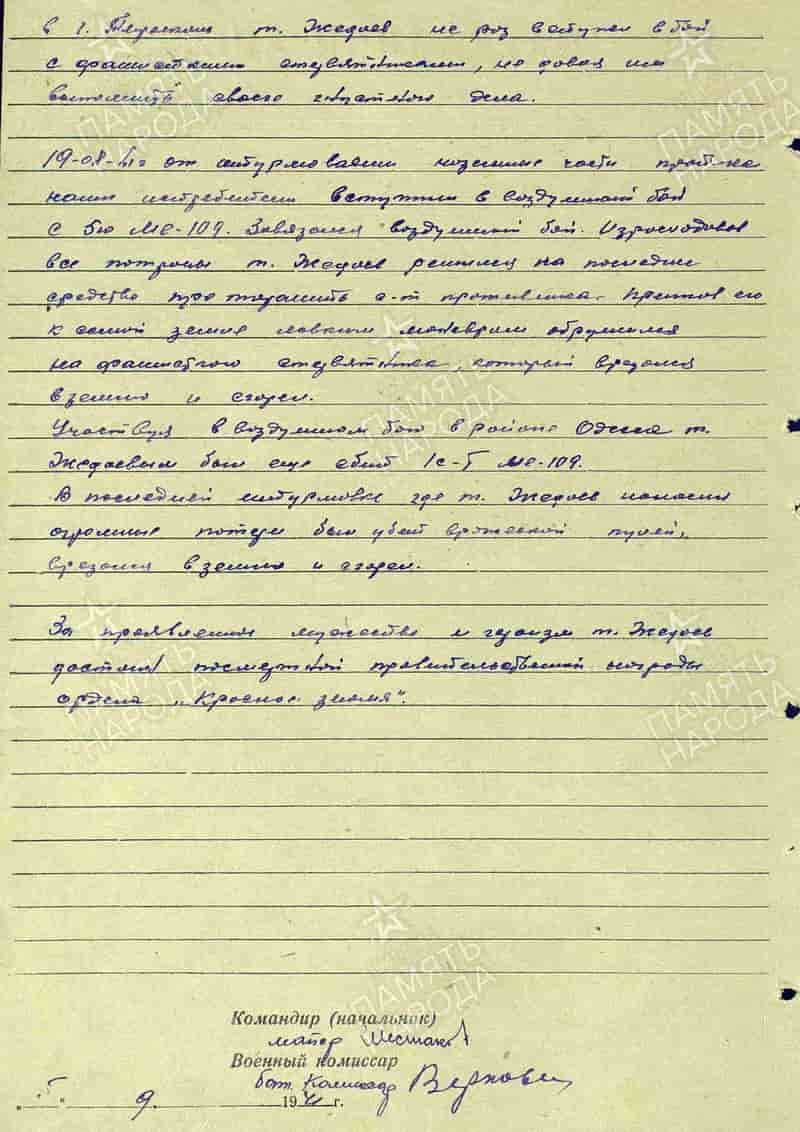 в г. Тирасполь т. Жедаев не раз вступал в бой
с фашистскими стервятниками, не давая им
выполнить своего гнусного дела.
19-08-41г от штурмовавши наземные части против-ка
наши истребители вступили в воздушный бой
с 5ю Ме-109. Завязался воздушный бой. Израсходовав
все патроны т. Жедаев решился на последнее
средство протаранить с-т противника. Прижав его
к самой земле ловким маневром обрушился
на фашисткого стервятника, который врезался
в землю и сгорел.
Участвуя в воздушном бою в районе Одесса т.
Жедаевым был еще сбит 1 с-т Ме-109.
В последней штурмовке где т. Жедаев наносил
огромные потери был убит вражеской пулей,
врезался в землю и сгорел.
За проявление мужества и героизм т. Жедаев
достоин посмертной правительственной награды
ордена „Красное знамя".
Командир (начальник)
майор Шестаков
Военный комиссар
бат. Комиссар Верховец
"5" 9 1941 г.
ПАМЯТЬ
НАРОДА